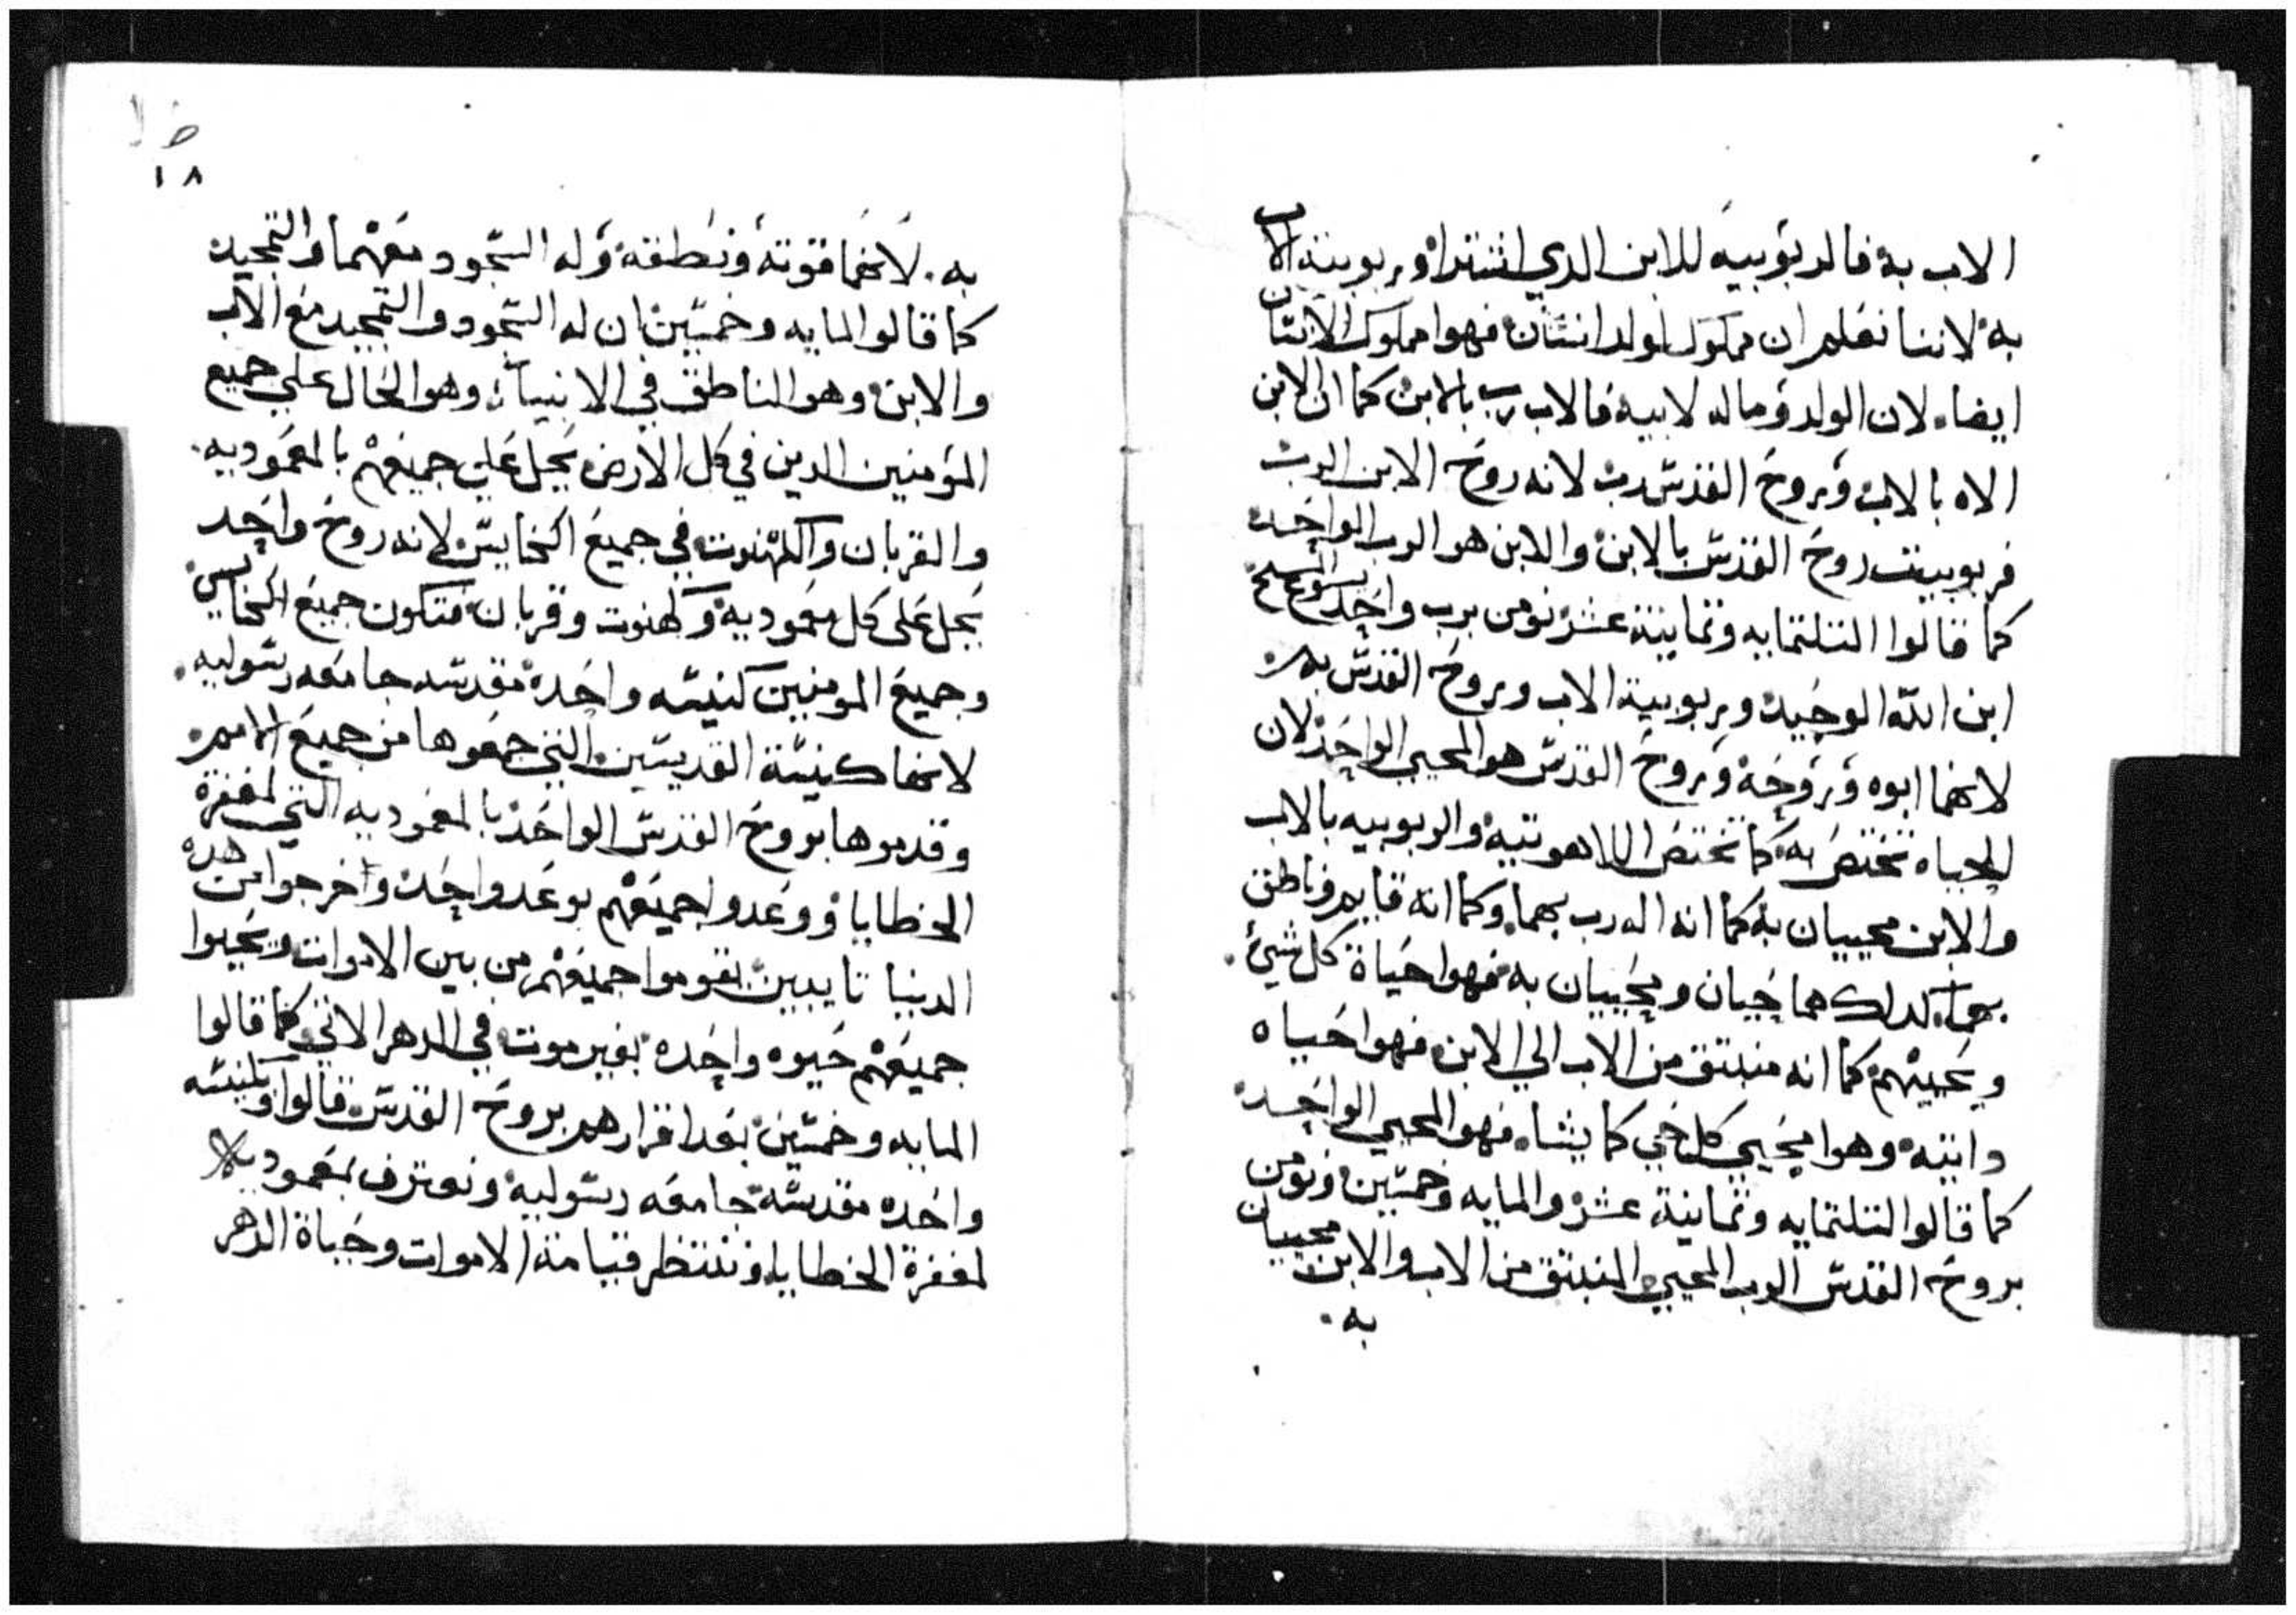 الاب به فالربوبيه للابن الدي اشترا وربوبية الاب
به لاننا نعلم ان مملوك لولد انسان فهوا مملوك الانسان
ايضا. لان الولد وماله لابيه فالاب رب بالابن كما ان الابن
الاه بالاب وبروح القدس رب لانه روح الابن الرب
فربوبيت روح القدس بالابن والابن هو الرب الواحد
كما قالوا التلتمايه وتمانية عشر نومن برب واحد يسوع المسيح
ابن الله الوحيد وربوبية الاب وبروح القدس به
لانهما ابوه وروحه وروح القدس هو المحيي الواحد لان
الحياه تختص به كما تختص اللاهوتيه والربوبيه بالاب
والابن محييان به كما انه اله رب بهما. وكما انه قايم وناطق
بهما. كدلك هما حيان ومحييان به فهوا حياة كل شيئ.
ويحييهم كما انه منبتق من الاب الي الابن فهوا حياه
داتيه وهوا يحيي كل حي كما يشا. فهو المحيي الواحد
كما قالوا التلتمايه وتمانية عشر والمايه وخمسين ونومن
بروح القدس الرب المحيي المنبتق من الاب والابن محييان
به.
١٨
به. لانهما قوته ونطقه وله السجود معهما والتمجيد
كما قالوا المايه وخمسين ان له السجود والتمجيد مع الاب
والابن وهو الناطق في الانبياء. وهو الحال علي جميع
المؤمنين الدين في كل الارض يحل علي جميعهم بالمعموديه.
والقربان والكهنوت في جميع الكنايس لانه روح واحد
يحل علي كل معموديه وكهنوت وقربان فتكون جميع الكنايس
وجميع المومنين كنيسه واحده مقدسه جامعه رسوليه.
لانها كنيسة القديسين التي جمعوها من جميع الامم.
وقدموها بروح القدس الواحد بالمعموديه التي لمغفرة
الخطايا ووعدوا جميعهم بوعد واحد واخرجوا من هده
الدنيا تايبين ليقوموا جميعهم من بين الاموات ويحيوا
جميعهم حيوه واحده بغير موت في الدهر الاتي كما قالوا
المايه وخمسين بعد اقرارهم بروح القدس قالوا وبكنيسه
واحده مقدسة جامعه رسوليه ونعترف بمعموديه
لمغفرة الخطايا وننتظر قيامة الاموات وحياة الدهر